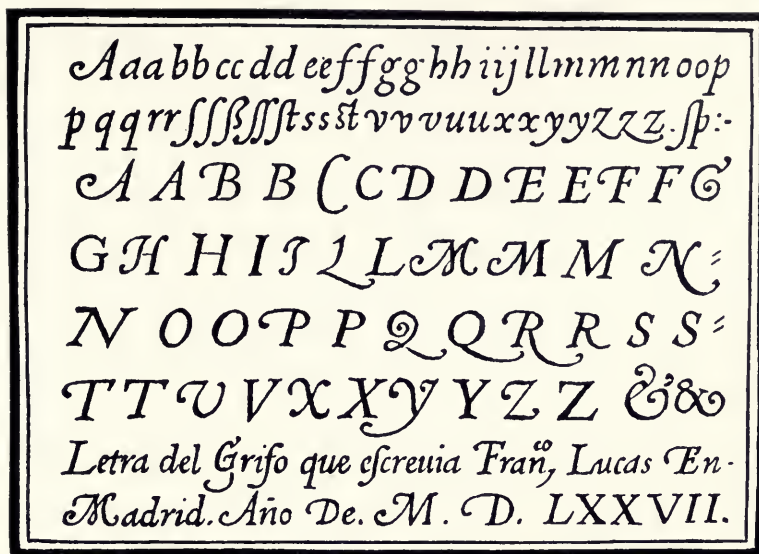 Aaabbccddeeffgghhiijllmmnnoop
pqqrrſſſßſſſtssstvvvuuxxyyzzz.ſp:-
A A B B C C D D E E F F G
G H H I J L L M M M N
N O O P P Q Q R R S S
T T V V X X Y Y Z Z & &
Letra del Grifo que eſcreuia Franco, Lucas En-
Madrid. Año De. M. D. LXXVII.